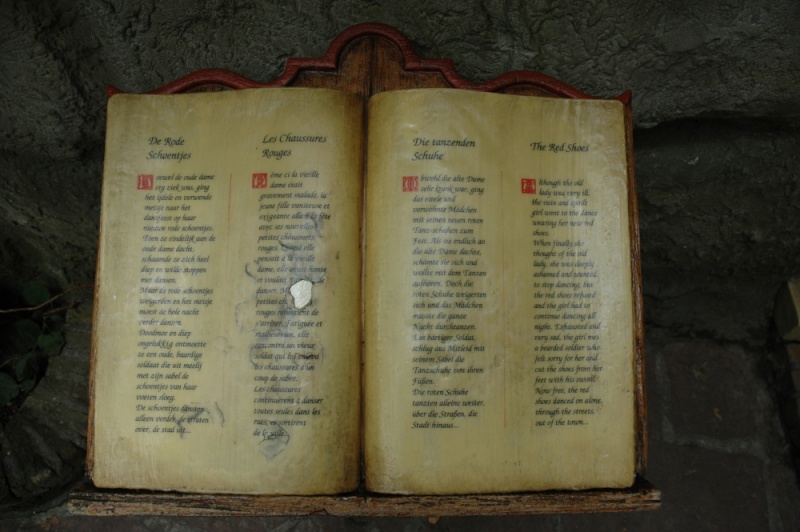 De Rode
Schoentjes
oude dame
erg ziek was, ging
het ijdele en verwende
meisje naar het
dansfeest op haar
nieuwe rode schoentjes.
Toen ze eindelijk aan de
oude dame dacht,
schaamde ze zich heel
diep en wilde stoppen
met dansen.
Maar de rode schoentjes
weigerden en het meisje
moest de hele nacht
verder dansen.
Doodmoe en diep
ongelukkig ontmoette
ze een oude, baardige
soldaat die uit medelij
met zijn sabel de
schoentjes van haar
voeten sloeg.
De schoentjes dansten
alleen verder, de straten
over, de stad uit...
Les Chaussures
Rouges
ême si la vieille
dame était
gravement malade, la
jeune fille vaniteuse et
exigeante alla à la fête
avec ses nouvelles
petites chaussures
rouges. Quand elle
pensait à la vieille
dame, elle honte
et voulait
danser.
petites
rouges de
s'arrêter. Fatiguée et
malheureuse, elle
rencontra un vieux
soldat qui lui enleva
les chaussures d'un
coup de sabre.
Les chaussures
continuèrent à danser
toutes seules dans les
rues, et sortirent
de la ville...
Die tanzenden
Schuhe
Obwohl die alte Dame
sehr krank war, ging
das eitele und
verwöhnte Mädchen
mit seinen neuen roten
Tanzschuhen zum
Fest. Als sie endlich an
die alte Dame dachte,
schämte sie sich und
wollte mit dem Tanzen
aufhören. Doch die
roten Schuhe weigerten
sich und das Mädchen
musste die ganze
Nacht durchtanzen.
Ein bärtiger Soldat
schlug aus Mitleid mit
seinem Säbel die
Tanzschuhe von ihren
Füßen.
Die roten Schuhe
tanzten alleine weiter,
über die Straßen, die
Stadt hinaus...
The Red Shoes
Although the old
lady was very ill,
the vain and spoilt
girl went to the dance
wearing her new red
shoes.
When finally she
thought of the old
lady, she was deeply
ashamed and wanted
to stop dancing, but
the red shoes refused
and the girl had to
continue dancing all
night. Exhausted and
very sad, the girl met
a bearded soldier who
felt sorry for her and
cut the shoes from her
feet with his sword.
Now free, the red
shoes danced on alone,
through the streets,
out of the town...